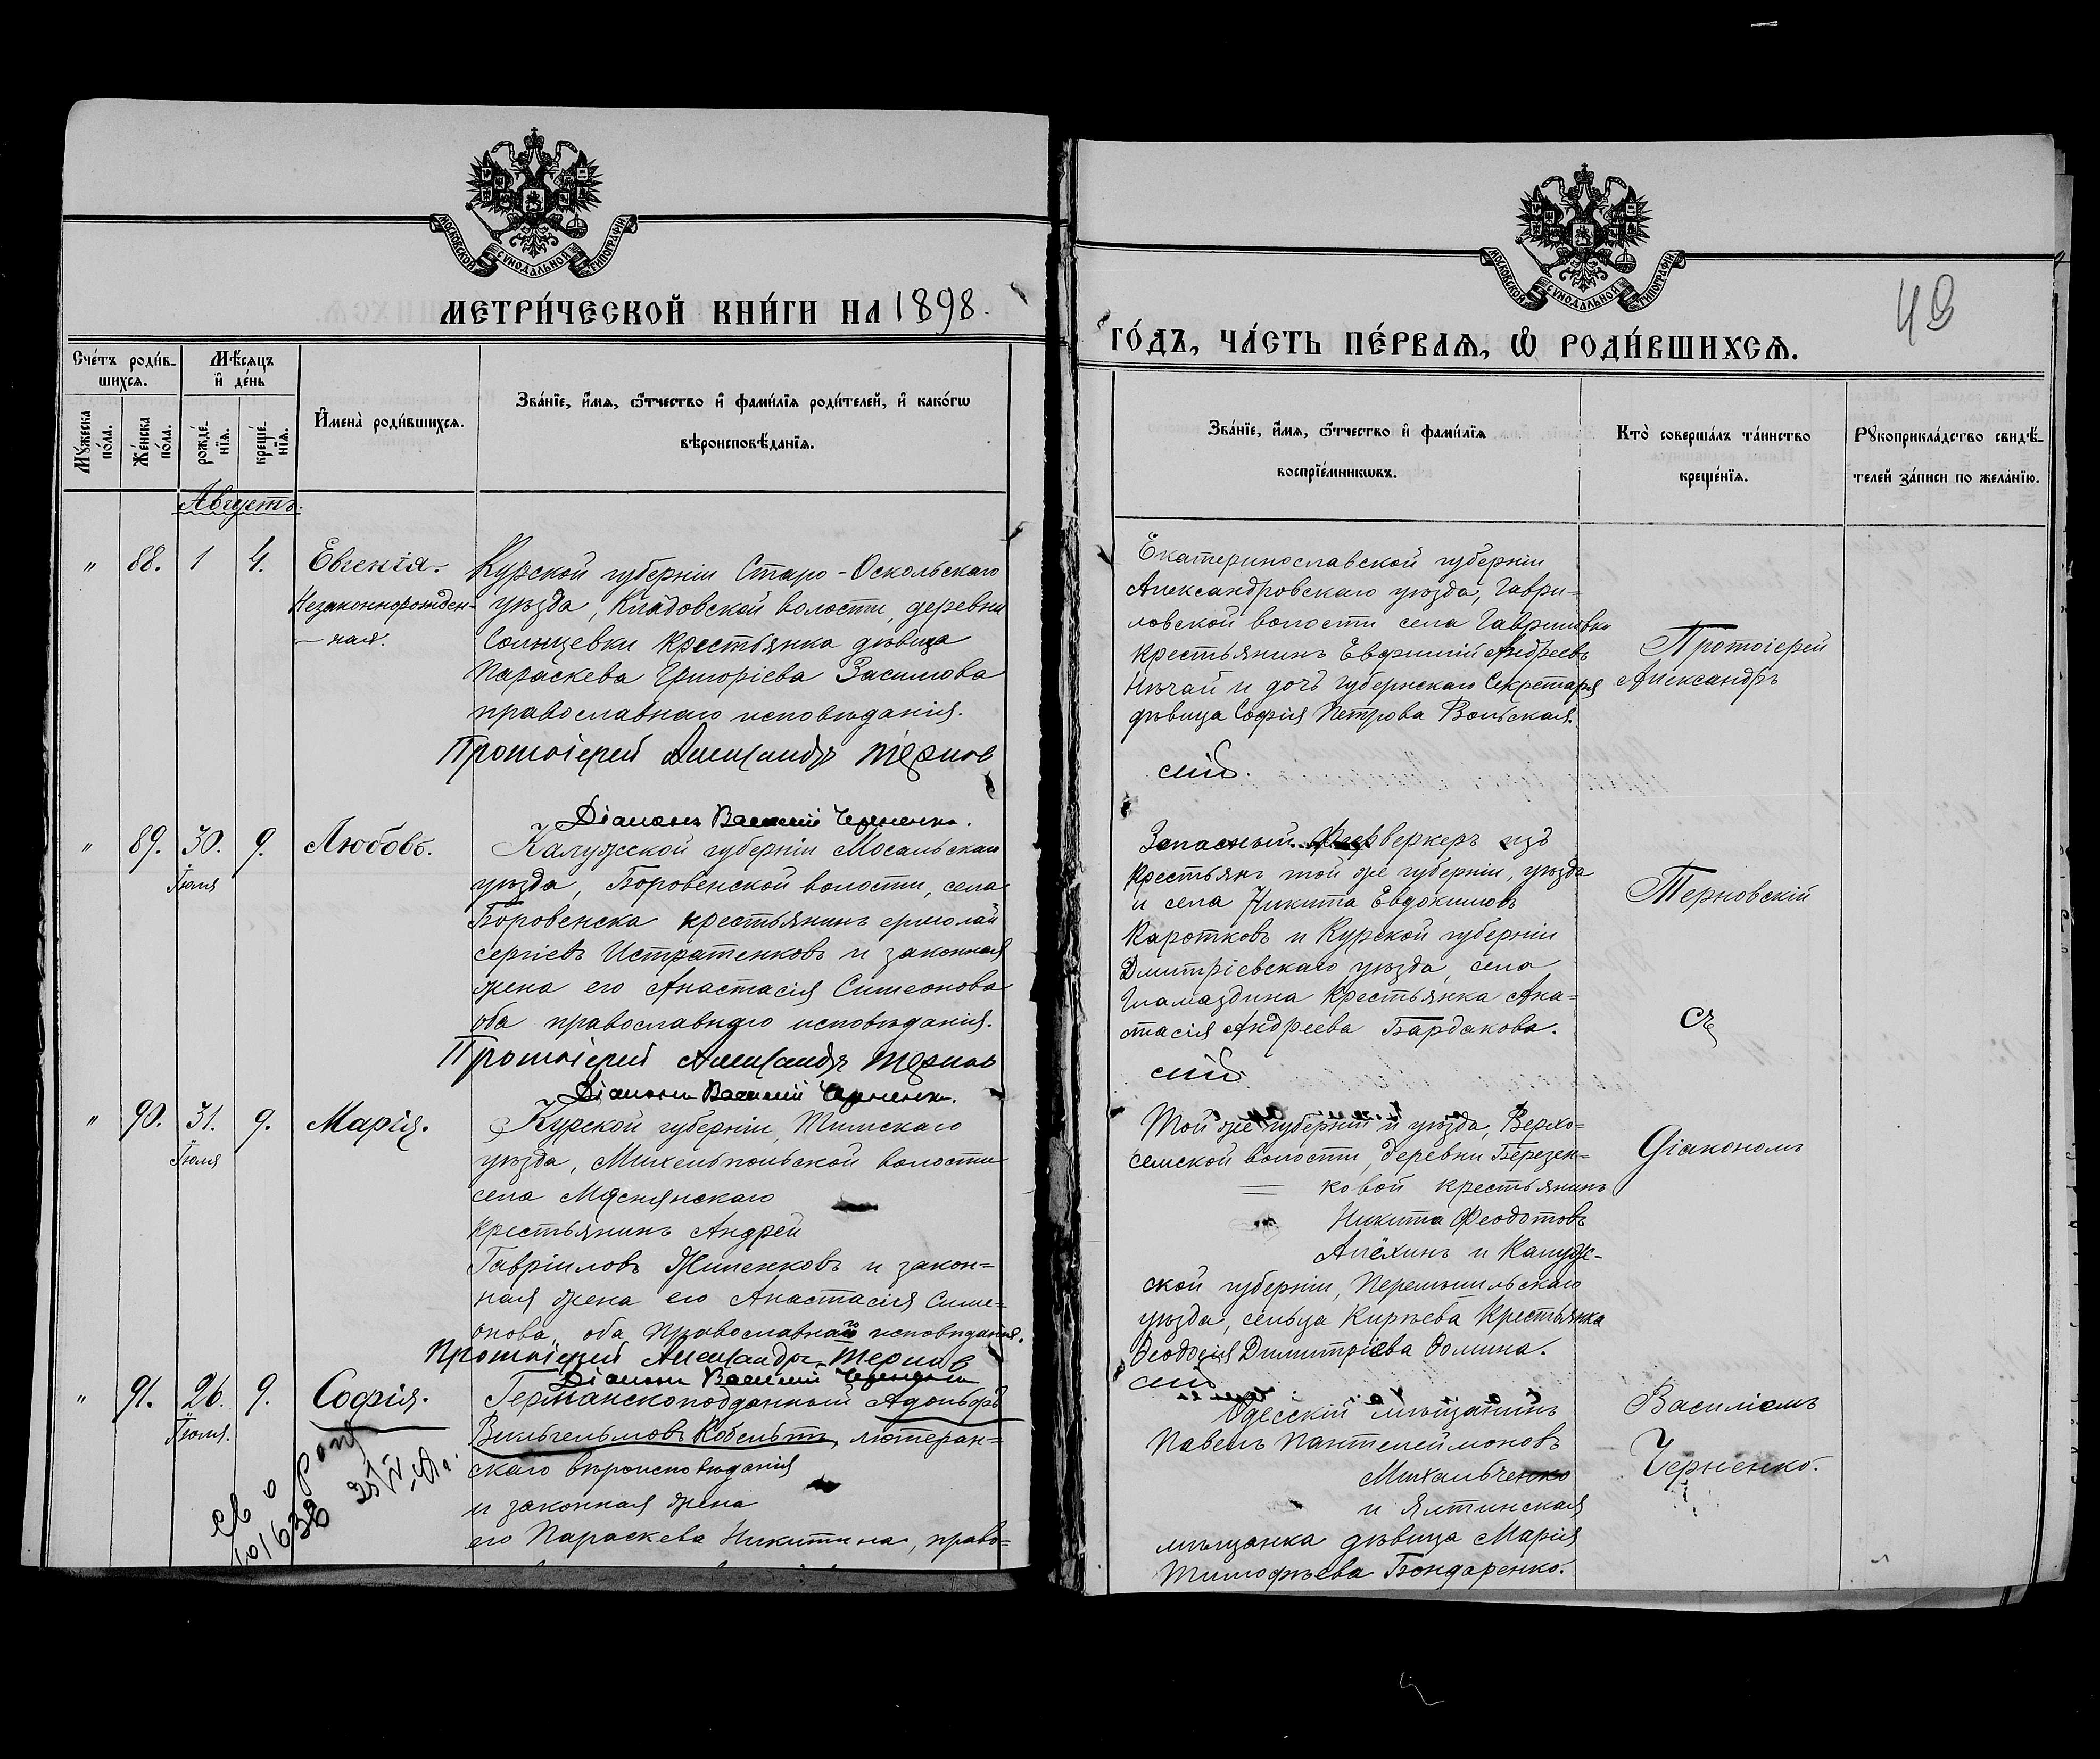 МОСКОВСКОЙ СѴНОДАЛЬНОЙ ТИПОГРАФІИ
МЕТРИ́ЧЕСКОЙ КНИ́ГИ НА 1898.
Сче́тъ роди́в-
шихся.
Мѣ́сяцъ
и҆ де́нь
Мꙋ́жеска
по́ла.
Же́нска
по́ла.
рожде́-
нїя.
креще́-
нїя.
И҆мена̀ роди́вшихся.
Зва́нїе, и҆́мя, ѻ҆́тчество и҆ фами́лїя роди́телей, и҆ како́гѡ
вѣроисповѣ́данїя.
Августъ.
" 88. 1 4. Евгенія.
Незаконнорожден-
ная.
Курской губерніи Старо-Оскольскаго
уѣзда, Кладовской волости, деревни
Солнцевки крестьянка дѣвица
Параскева Григоріева Засимова
православнаго исповѣданія.
Протоіерей Александръ Тернов
Діаконъ Василій Черненко.
" 89. 30. 9. Любовь.
Іюля
Калужской губерніи Мосальскаго
уѣзда, Боровенской волости, села
Боровенска крестьянинъ Ермолай
Сергіевъ Истратенковъ и законная
жена его Анастасія Симеонова
оба православнаго исповѣданія.
Протоіерей Александръ Тернов
Діаконъ Василій Черненко.
" 90. 31. 9. Марія.
Іюля
Курской губерніи, Тимскаго
уѣзда, Михельпольской волости
села Мяснянскаго
крестьянинъ Андрей
Гавріиловъ Жиленковъ и закон=
ная жена его Анастасія Симе=
онова, оба православнаго исповѣданія.
Протоіерей Александръ Тернов
Діаконъ Василій Черненко
" 91. 26. 9. Софія.
Іюля.
Германскоподданный Адольфъ
Вильгельмовъ Кобельтъ, лютеран=
скаго вѣроисповѣданія
и законная жена
его Параскева Никитина, право=
101638
МОСКОВСКОЙ СѴНОДАЛЬНОЙ ТИПОГРАФІИ
ГО́ДЪ, ЧА́СТЬ ПЕ́РВАѦ, Ѡ҆ РОДИ́ВШИХСѦ.
Зва́нїе, и҆́мя, ѻ҆́тчество и҆ фами́лїя
воспрїе́мникѡвъ.
Кто̀ соверша́лъ та́инство
креще́нїя.
Рꙋкоприкла́дство свидѣ́-
телей за́писи по жела́нїю.
Екатеринославской губерніи
Александровскаго уѣзда, Гаври=
ловской волости села Гавриловки
крестьянинъ Евфимій Андреевъ
Нѣчай и дочь губернскаго секретаря
дѣвица Софія Петрова Вольская.
скій.
Запасный фейерверкеръ изъ
крестьянъ той же губерніи, уѣзда
и села Никита Евдокимовъ
Коротковъ и Курской губерніи
Дмитріевскаго уѣзда, села
Гламаздина крестьянка Ана=
стасія Андреева Бардакова.
скій
Той же губерніи и уѣзда, Верхо=
семской волости, деревни Березен=
ковой крестьянинъ
Никита Феодотовъ
Алёхинъ и Калуж-
ской губерніи, Перемышльскаго
уѣзда, сельца Кирѣева крестьянка
Феодосія Димитріева Фомина.
скій
Одесскій мѣщанинъ
Павелъ Пантелеймоновъ
Михальченко
и Ялтинская
мѣщанка дѣвица Марія
Тимофѣева Бондаренко.
Протоіерей
Александръ
Терновскій
съ
Діакономъ
Василіемъ
Черненко.